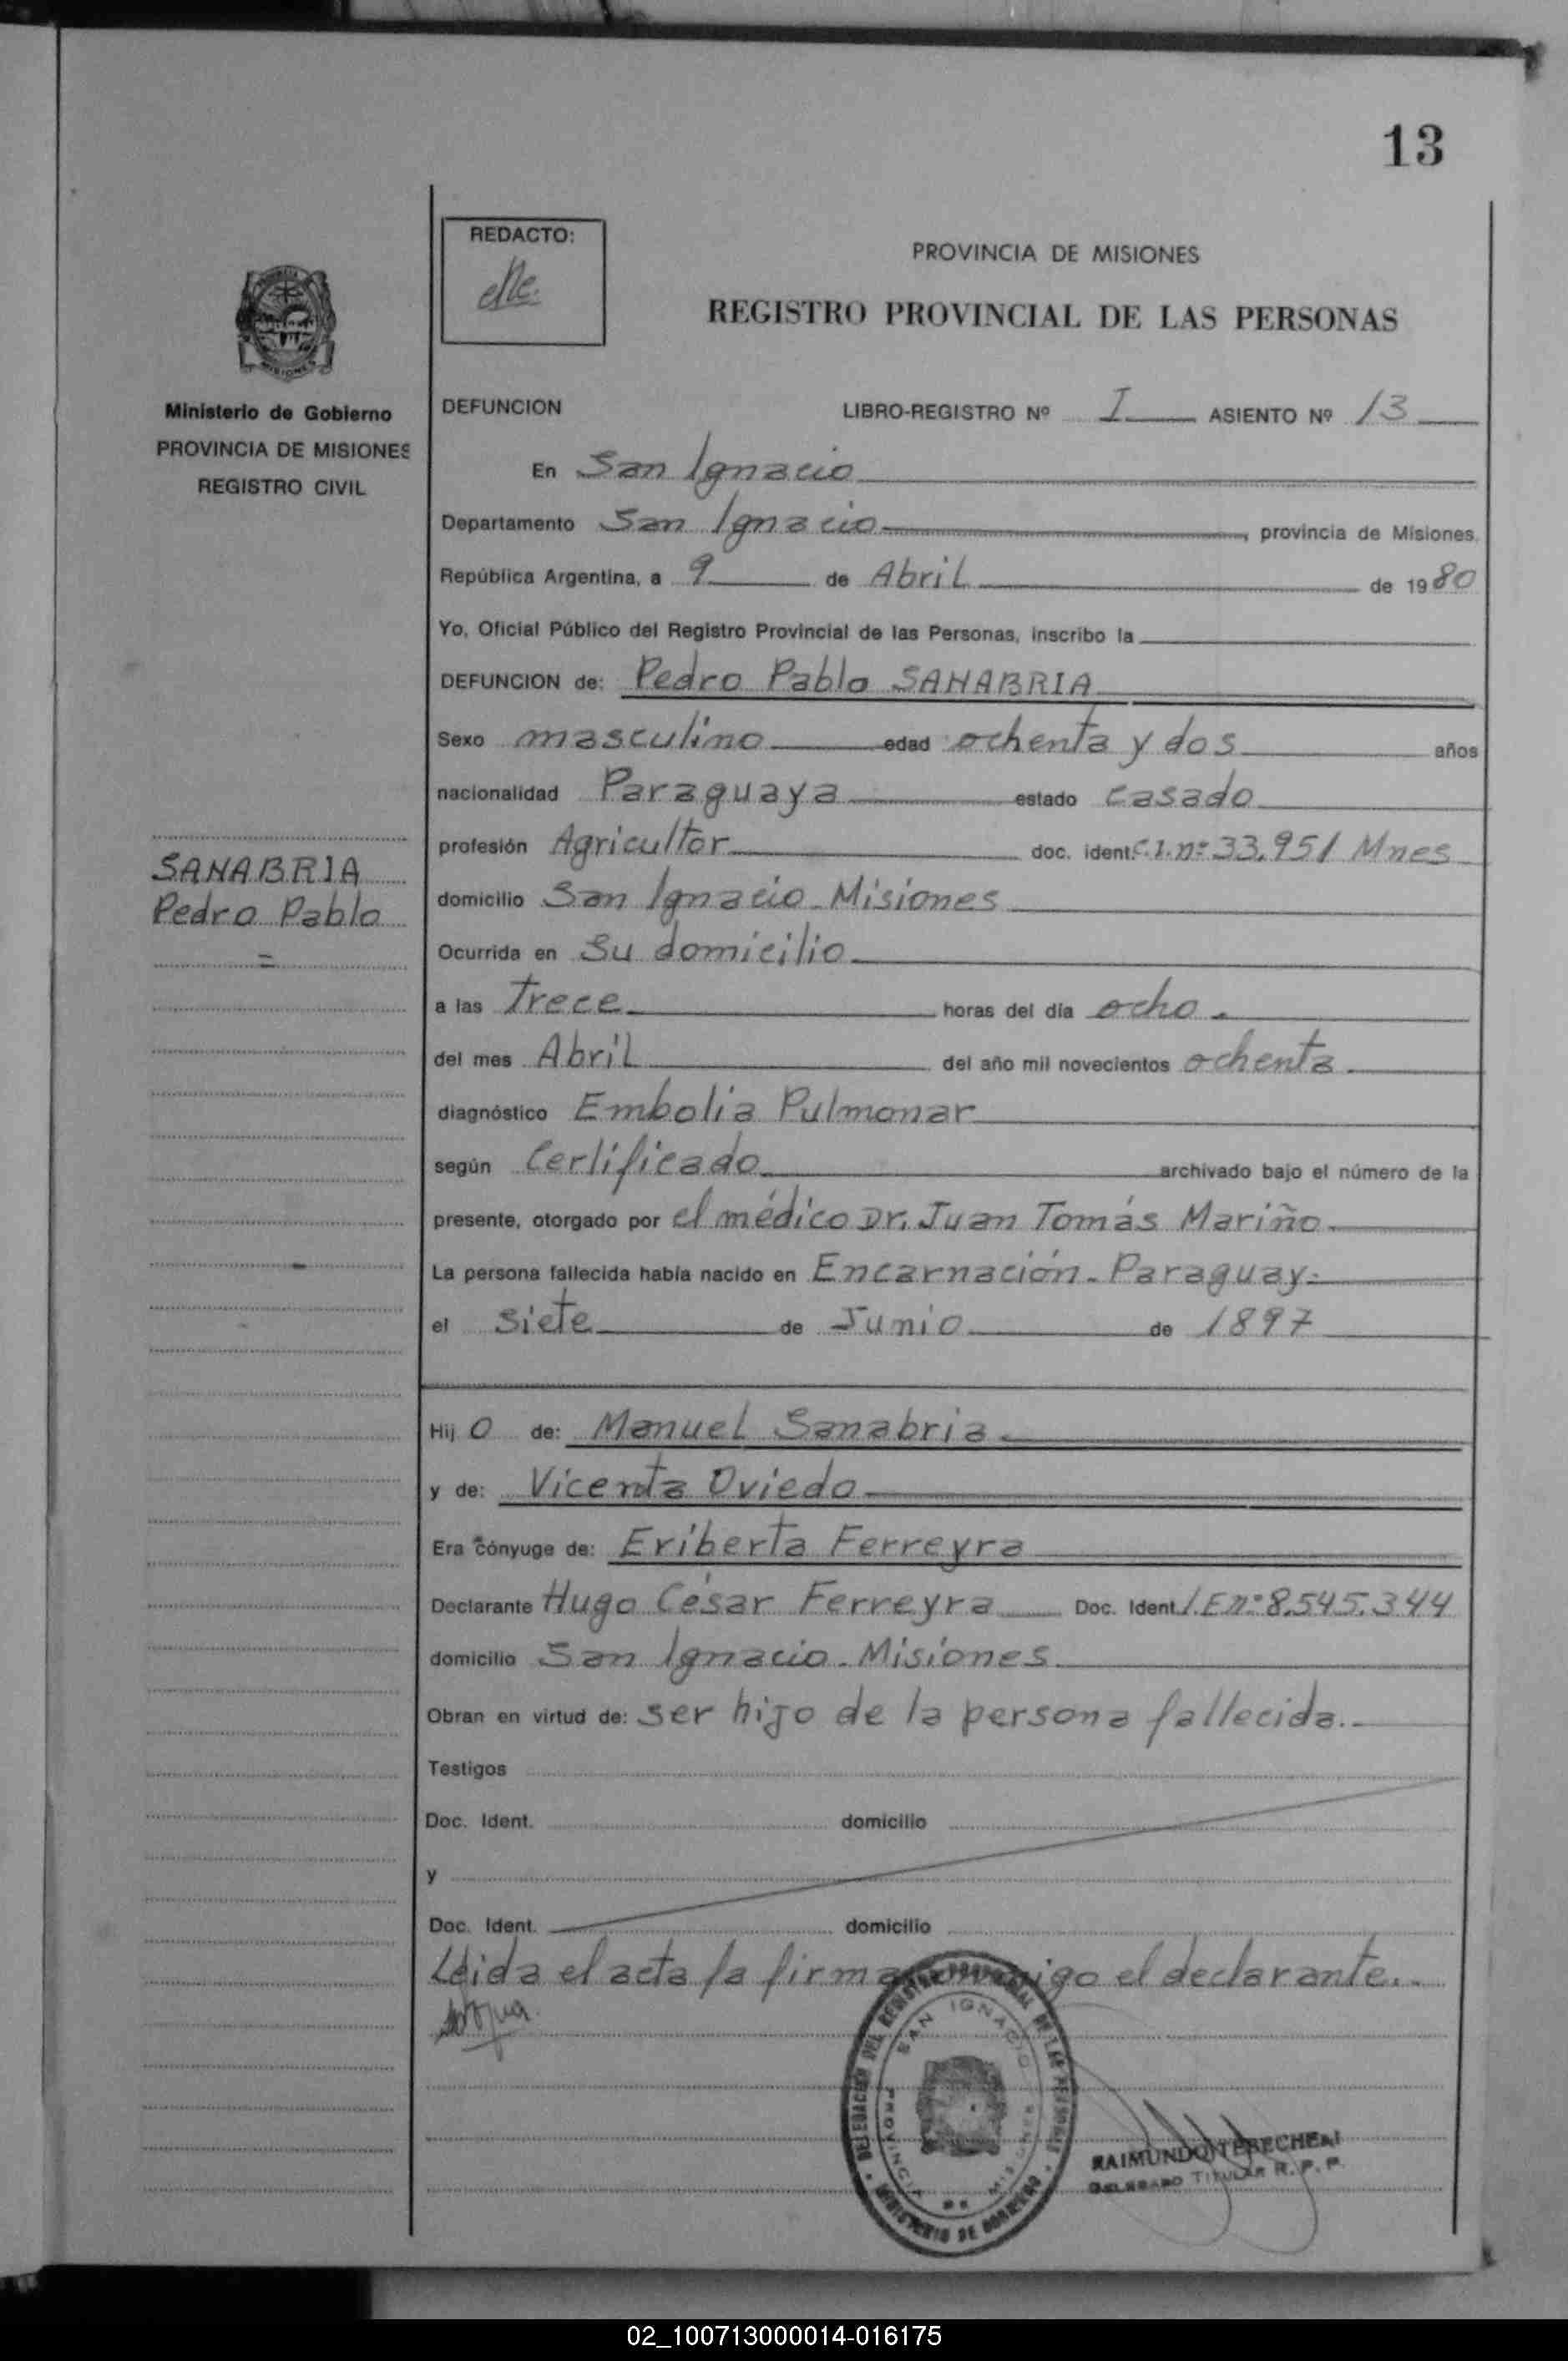 13
REDACTO:
PROVINCIA DE MISIONES
REGISTRO PROVINCIAL DE LAS PERSONAS
Ministerio de Gobierno
PROVINCIA DE MISIONES
REGISTRO CIVIL
DEFUNCION LIBRO-REGISTRO Nº I ASIENTO Nº 13
En San Ignacio
Departamento San Ignacio, provincia de Misiones.
República Argentina, a 9 de Abril de 1980
Yo, Oficial Público del Registro Provincial de las Personas, inscribo la
DEFUNCION de: Pedro Pablo SANABRIA
Sexo masculino edad ochenta y dos años
nacionalidad Paraguaya estado casado
profesión Agricultor doc. ident. C.I. nº 33.951 Mnes
SANABRIA
Pedro Pablo
=
domicilio San Ignacio - Misiones
Ocurrida en Su domicilio
a las Trece horas del día ocho.
del mes Abril del año mil novecientos ochenta
diagnóstico Embolia Pulmonar
según Certificado archivado bajo el número de la
presente, otorgado por el médico Dr. Juan Tomás Mariño
La persona fallecida había nacido en Encarnación - Paraguay
el Siete de Junio de 1897
Hij o de: Manuel Sanabria
y de: Vicenta Oviedo
Era cónyuge de: Eriberta Ferreyra
Declarante Hugo César Ferreyra Doc. Ident. L.E nº 8.545.344
domicilio San Ignacio - Misiones
Obran en virtud de: ser hijo de la persona fallecida.
Testigos
Doc. Ident. domicilio
y
Doc. Ident. domicilio
Leida el acta la firma conmigo el declarante.
DELEGACION DEL REGISTRO PROVINCIAL DE LAS PERSONAS
SAN IGNACIO
PROVINCIA DE MISIONES
MINISTERIO DE GOBIERNO
RAIMUNDO
DELEGADO TITULAR R. P. P.
02_100713000014-016175